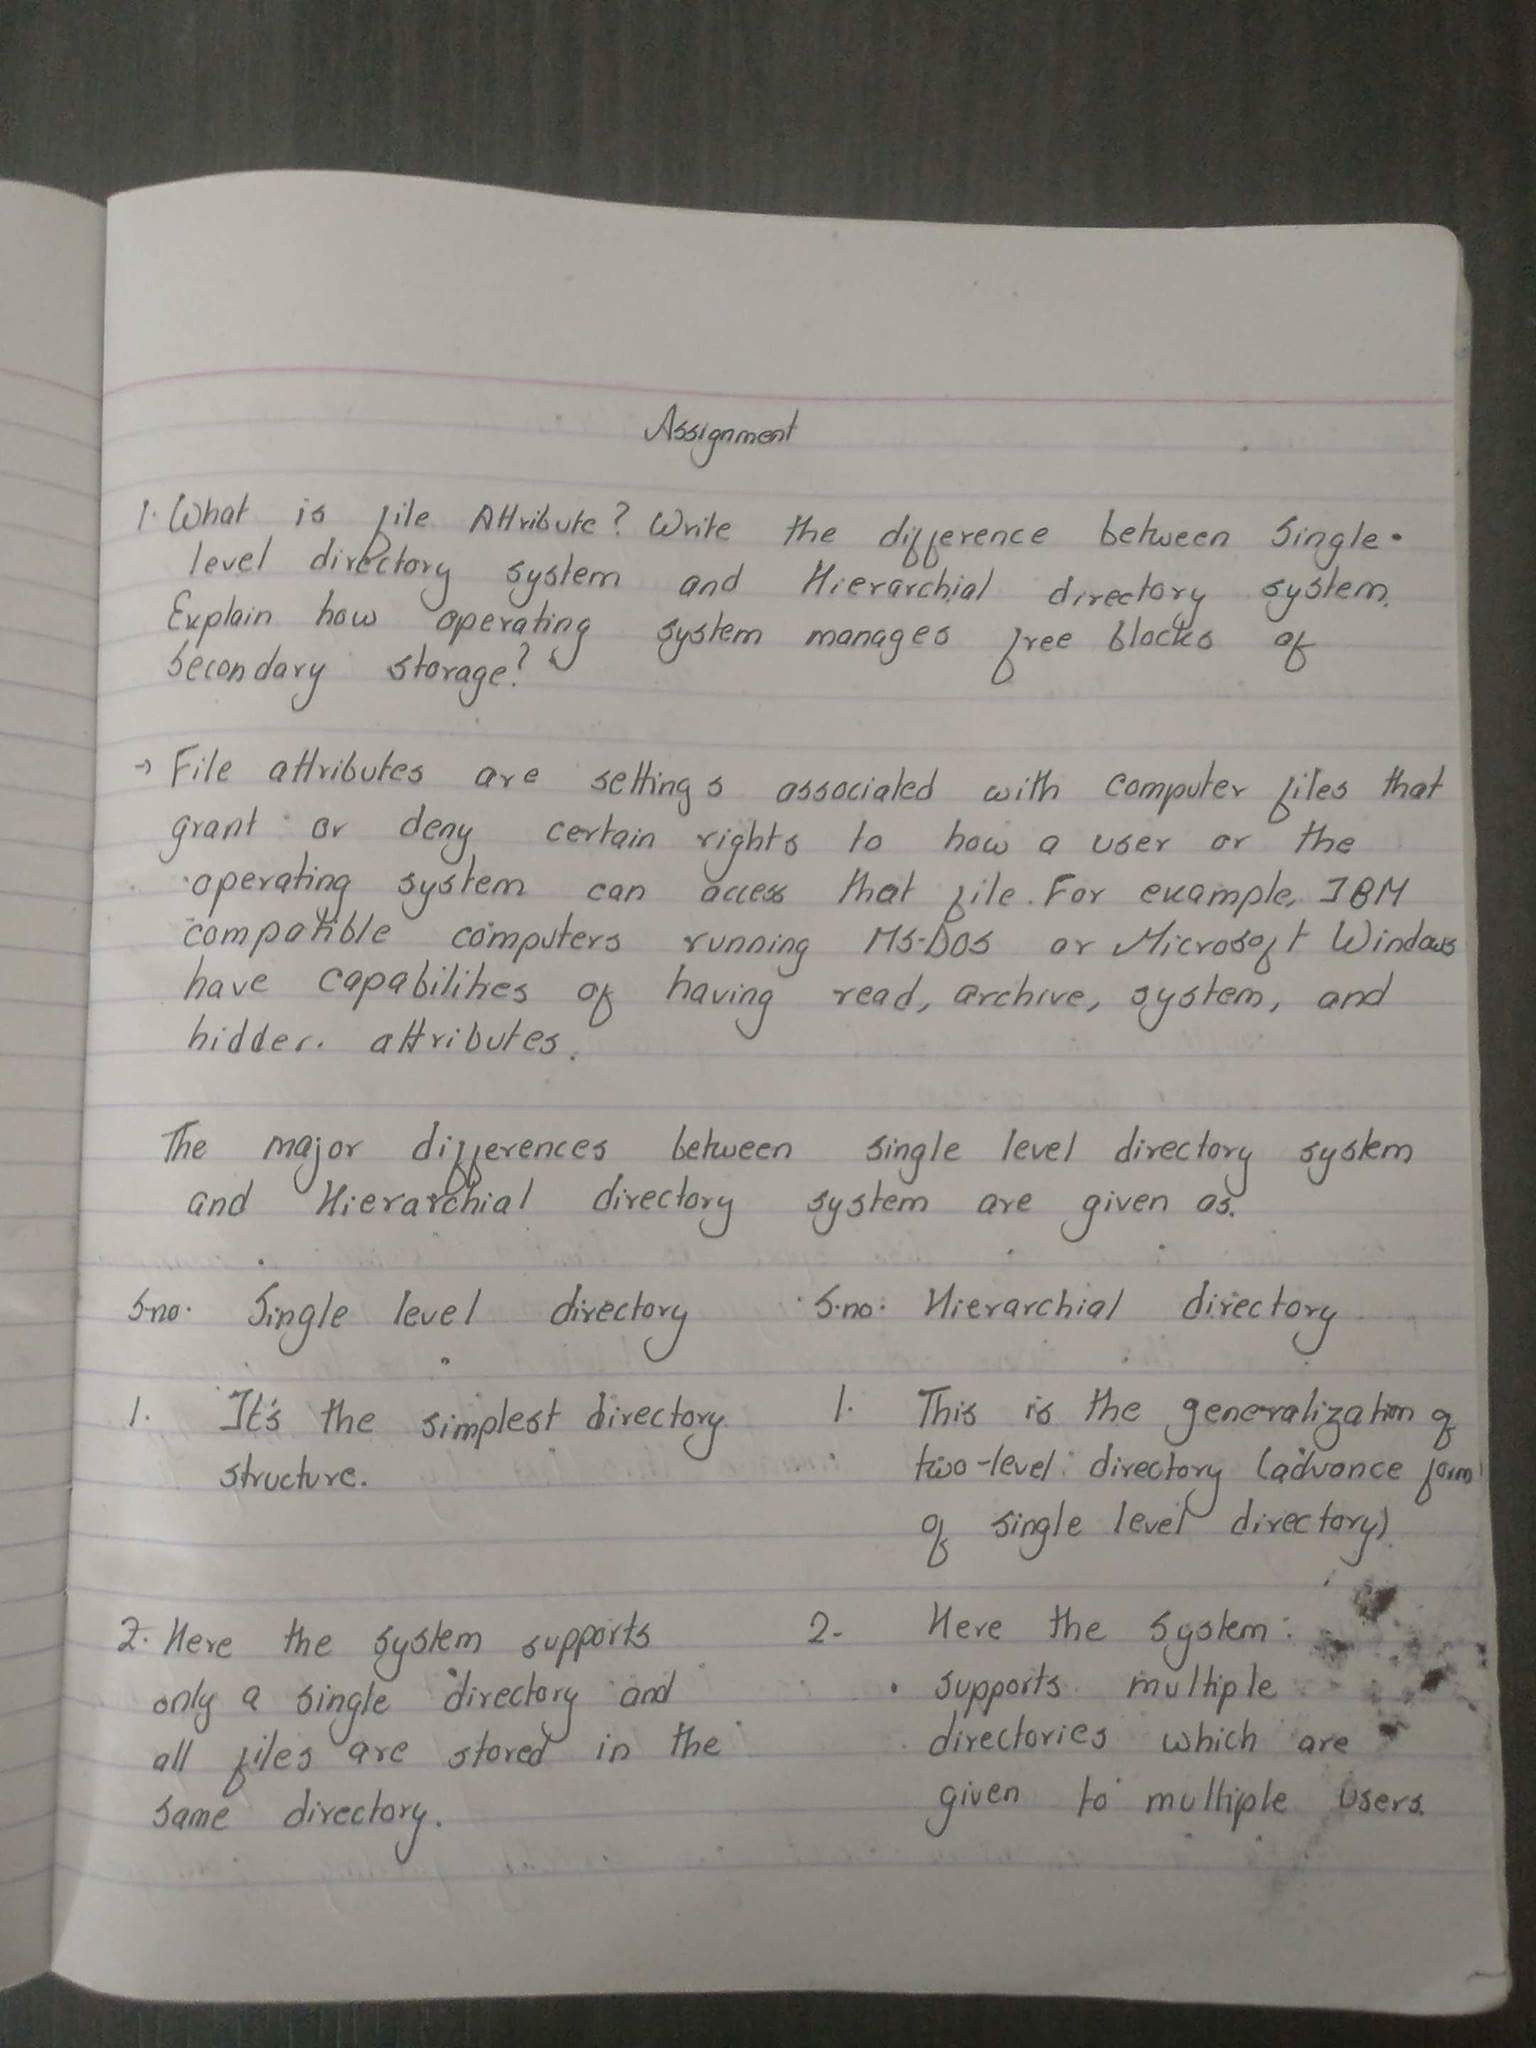 Assignment
1. What is file Attribute? Write the difference between Single-
level directory system and Hierarchial directory system.
Explain how operating system manages free blocks of
Secondary storage?
→ File attributes are settings associated with computer files that
grant or deny certain rights to how a user or the
operating system can access that file. For example, IBM
compatible computers running MS-DOS or Microsoft Windows
have capabilities of having read, archive, system, and
hidden attributes.
The major differences between single level directory system
and Hierarchial directory system are given as.
S.no. Single level directory
S.no. Hierarchial directory
1. It's the simplest directory
structure.
1. This is the generalization of
two-level directory (advance form
of single level directory)
2. Here the system supports
only a single directory and
all files are stored in the
same directory.
2. Here the system
supports multiple
directories which are
given to multiple users.